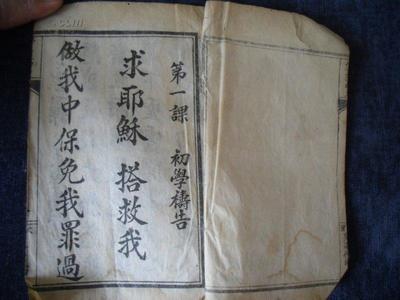 第一課 初學禱告
求耶穌 搭救我
做我中保免我罪過